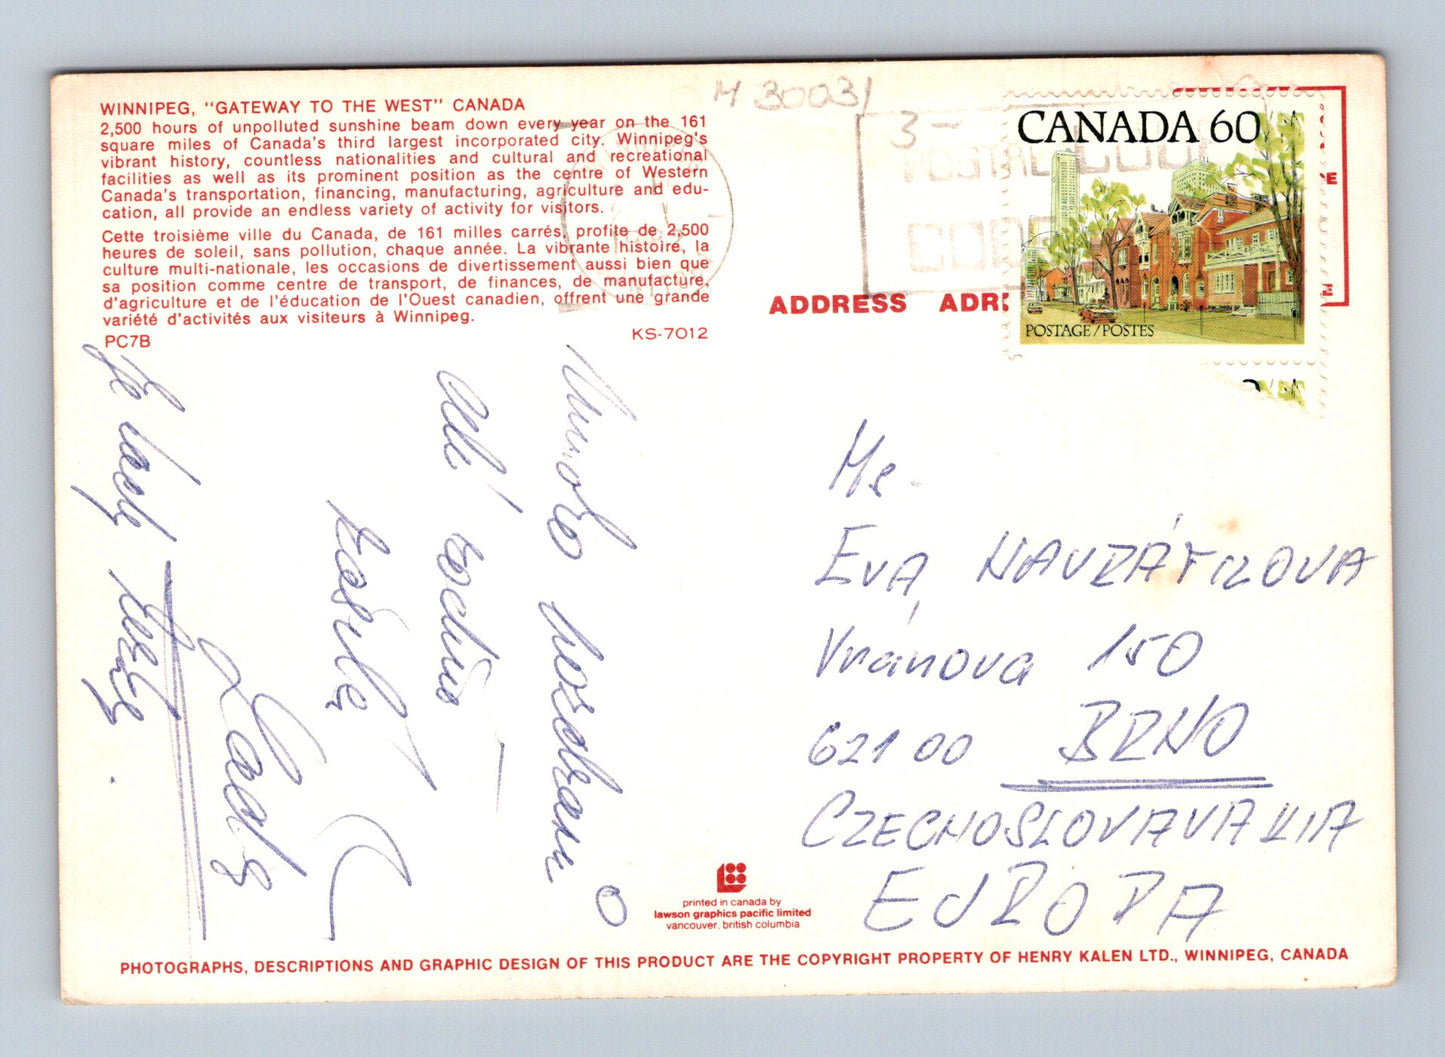 WINNIPEG, "GATEWAY TO THE WEST" CANADA
2,500 hours of unpolluted sunshine beam down every year on the 161
square miles of Canada's third largest incorporated city. Winnipeg's
vibrant history, countless nationalities and cultural and recreational
facilities as well as its prominent position as the centre of Western
Canada's transportation, financing, manufacturing, agriculture and edu-
cation, all provide an endless variety of activity for visitors.
Cette troisième ville du Canada, de 161 milles carrés, profite de 2,500
heures de soleil, sans pollution, chaque année. La vibrante histoire, la
culture multi-nationale, les occasions de divertissement aussi bien que
sa position comme centre de transport, de finances, de manufacture,
d'agriculture et de l'éducation de l'Ouest canadien, offrent une grande
variété d'activités aux visiteurs à Winnipeg.
PC7B
KS-7012
M 3003/
3-
POSTAL CODE
CODE
CANADA 60
POSTAGE/POSTES
ADDRESS ADR
Mnoho pozdravů
celé rodině
posílá
Lada
Eva NAVRÁTILOVA
Vránova 150
62100 BRNO
CZECHOSLOVAVAKIA
EUROPA
printed in canada by
lawson graphics pacific limited
vancouver, british columbia
PHOTOGRAPHS, DESCRIPTIONS AND GRAPHIC DESIGN OF THIS PRODUCT ARE THE COPYRIGHT PROPERTY OF HENRY KALEN LTD., WINNIPEG, CANADA